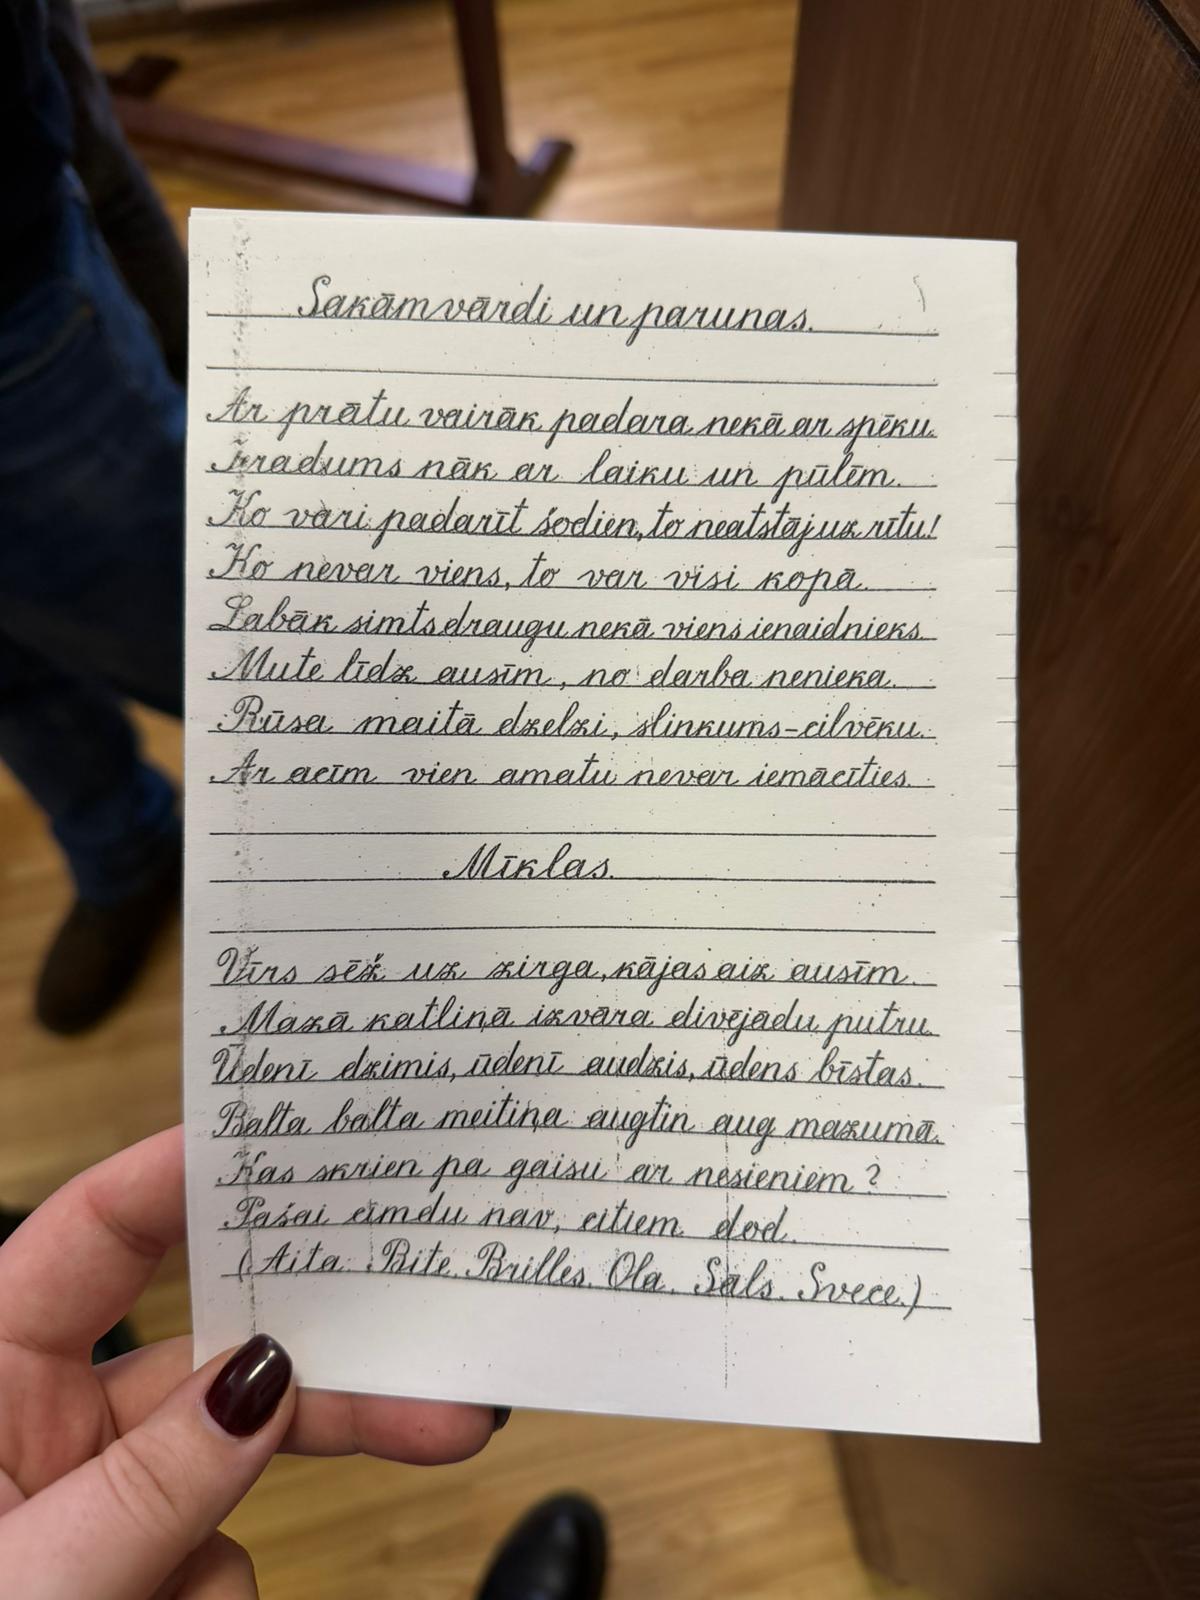 Sakāmvārdi un parunas.
Ar prātu vairāk padara nekā ar spēku.
Ieradums nāk ar laiku un pūlēm.
Ko vari padarīt šodien, to neatstāj uz rītu!
Ko nevar viens, to var visi kopā.
Labāk simts draugu nekā viens ienaidnieks.
Mute līdz ausīm, no darba nenieka.
Rūsa maitā dzelzi, slinkums-cilvēku.
Ar acīm vien amatu nevar iemācīties.
Mīklas.
Vīrs sēž uz zirga, kājas aiz ausīm.
Mazā katliņā izvāra divējādu putru.
Ūdenī dzimis, ūdenī audzis, ūdens bīstas.
Balta balta meitiņa augtin aug mazumā.
Kas skrien pa gaisu ar nesieniem?
Pašai cimdu nav, citiem dod.
(Aita. Bite. Brilles. Ola. Sāls. Svece.)